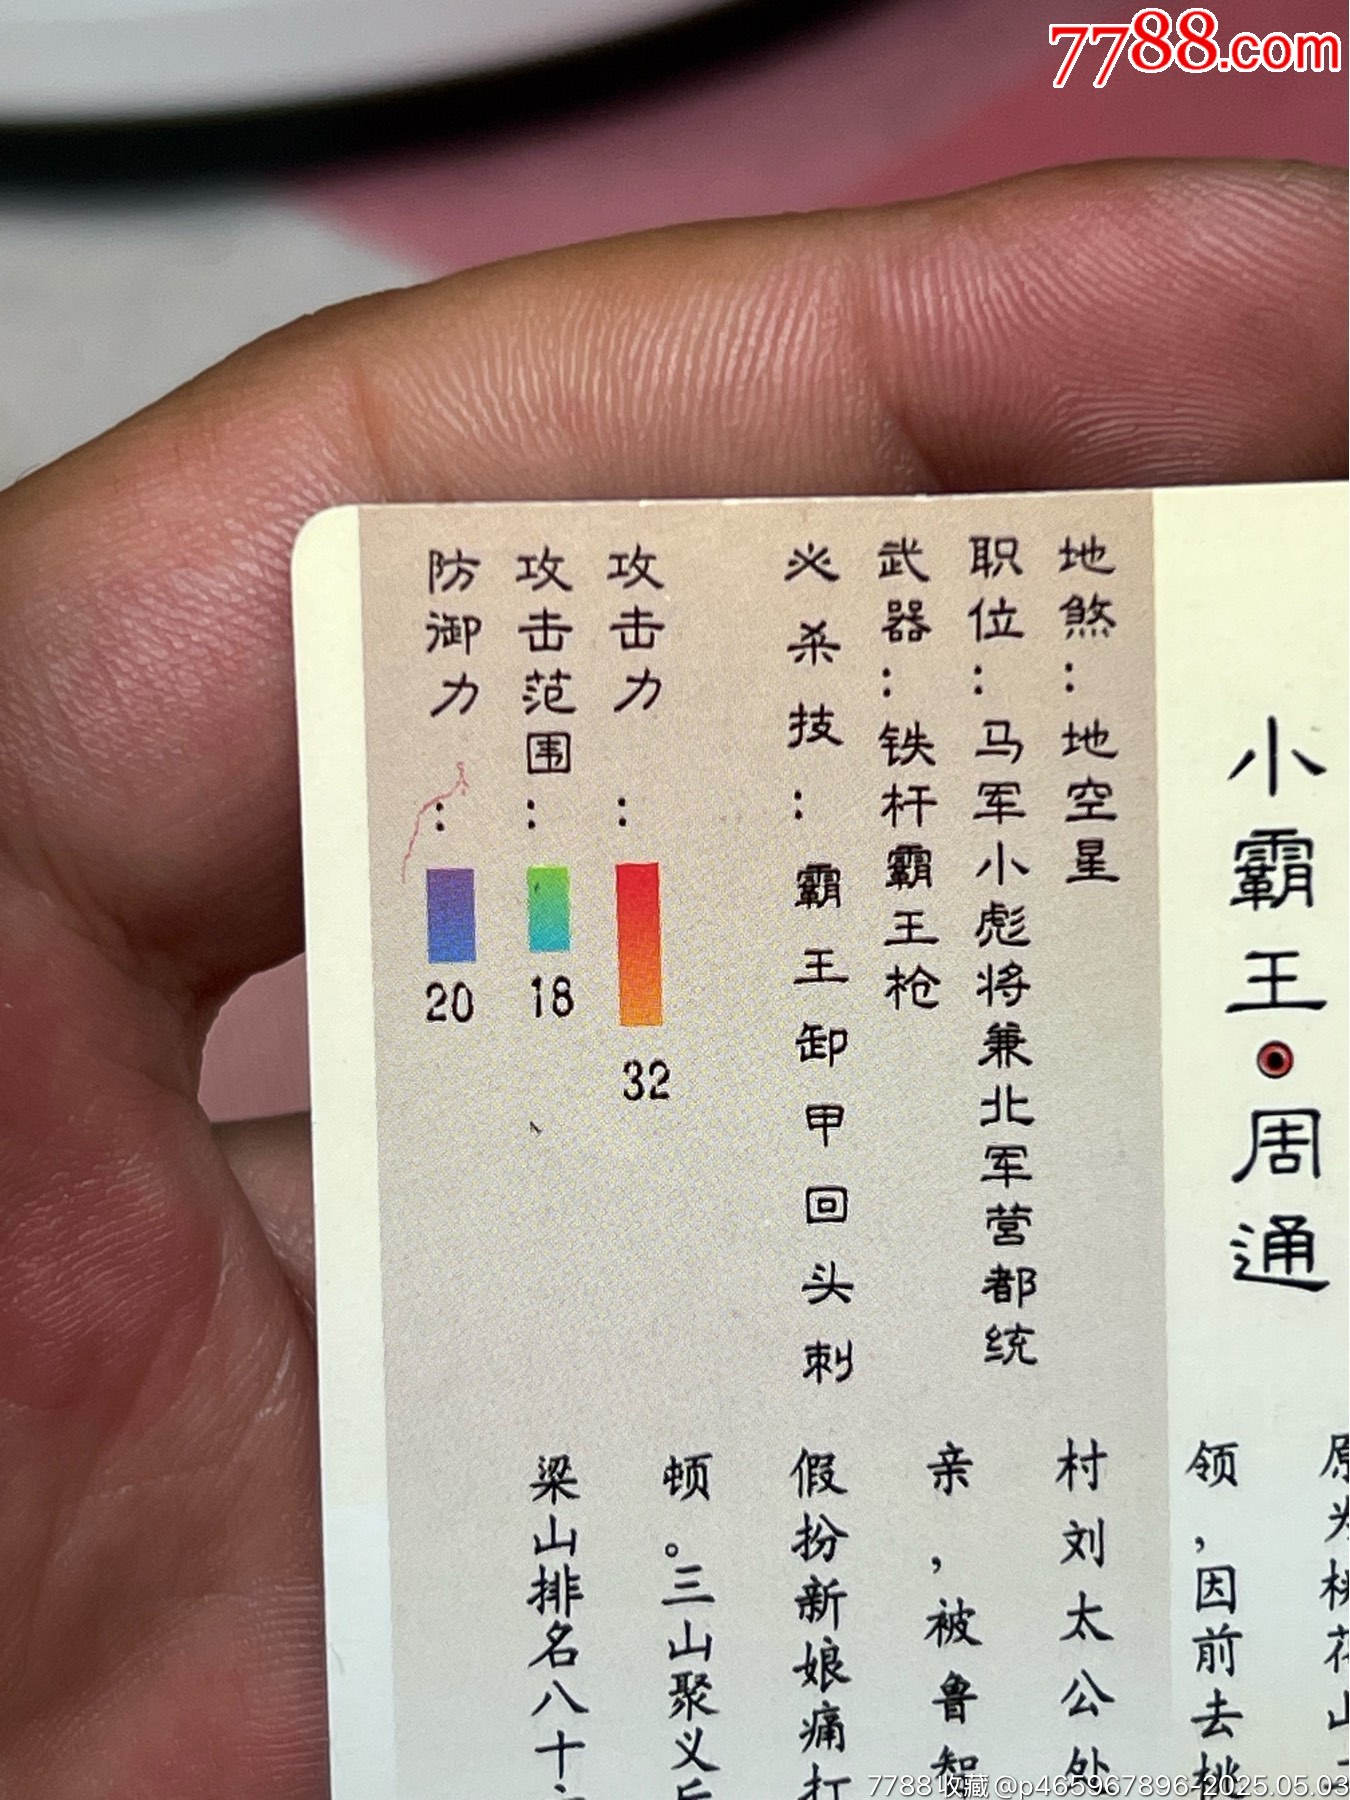 7788.com
小霸王·周通
地煞：地空星
职位：马军小彪将兼北军营都统
武器：铁杆霸王枪
必杀技：霸王卸甲回头刺
攻击力：32
攻击范围：18
防御力：20
原为桃花山
领，因前去桃
村刘太公处
亲，被鲁智
假扮新娘痛打
顿。三山聚义后
梁山排名八十
7788收藏@p465967896-2025.05.03